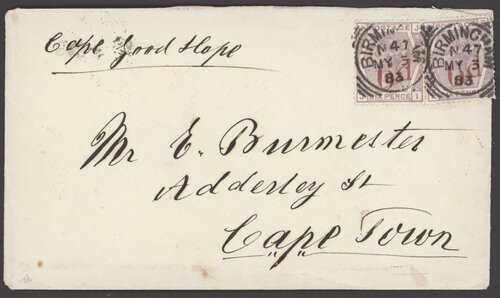 Cape Good Hope
BIRMINGHAM
N 47
MY 3
83
BIRMINGHAM
N 47
MY 3
83
SIX PENCE
I
Mr E. Burmester
Adderley St
Cape Town